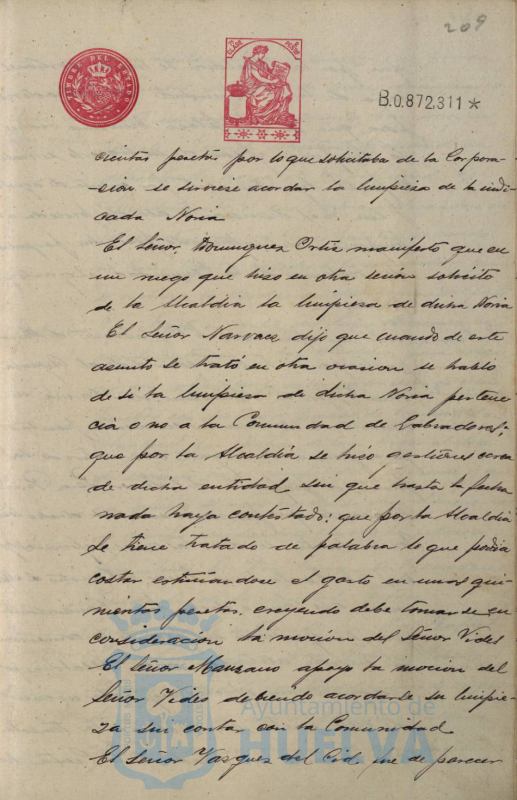 209
TIMBRE DEL ESTADO
B.0.872.311*
cientas pesetas por lo que solicitaba de la Corpora-
-cion se sirviese acordar la limpiesa de la indi
cada Noria
El Señor Dominguez Ortiz manifestó que en
un ruego que hiso en otra sesión solicitó
de la Alcaldía la limpiesa de dicha Noria
El Señor Narvaez dijo que cuando de este
asunto se trató en otra ocasion se habló
de si la limpiesa de dicha Noria pertene
cia o no a la Comunidad de Labradores;
que por la Alcaldía se hiso gestiones cerca
de dicha entidad sin que hasta la fecha
nada haya contestado; que por la Alcaldía
se tiene tratado de palabra lo que podia
costar estimandose el gasto en unas qui
nientas pesetas, creyendo debe tomarse en
consideración la mocion del Señor Vides
El Señor Manzano apoyó la mocion del
Señor Vides debiendo acordarse su limpie-
za sin contar con la Comunidad
El Señor Vazquez del Cid, fue de parecer
Ayuntamiento de
HUELVA